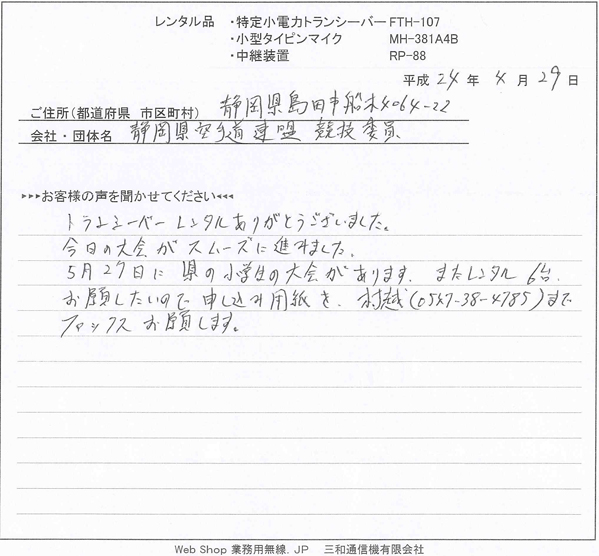 レンタル品 ・特定小電力トランシーバー FTH-107
・小型タイピンマイク MH-381A4B
・中継装置 RP-88
平成 24 年 4 月 29 日
ご住所(都道府県 市区町村) 静岡県島田市船木4064-22
会社・団体名 静岡県空手道連盟 競技委員
▸▸▸お客様の声を聞かせてください◂◂◂
トランシーバー レンタルありがとうございました。
今日の大会がスムーズに進みました。
5月27日に 県の小学生の大会があります。またレンタル 6台、
お願したいので 申し込み用紙を、村越(0547-38-4785)まで
ファックス お願します。
Web Shop 業務用無線.JP 三和通信機有限会社